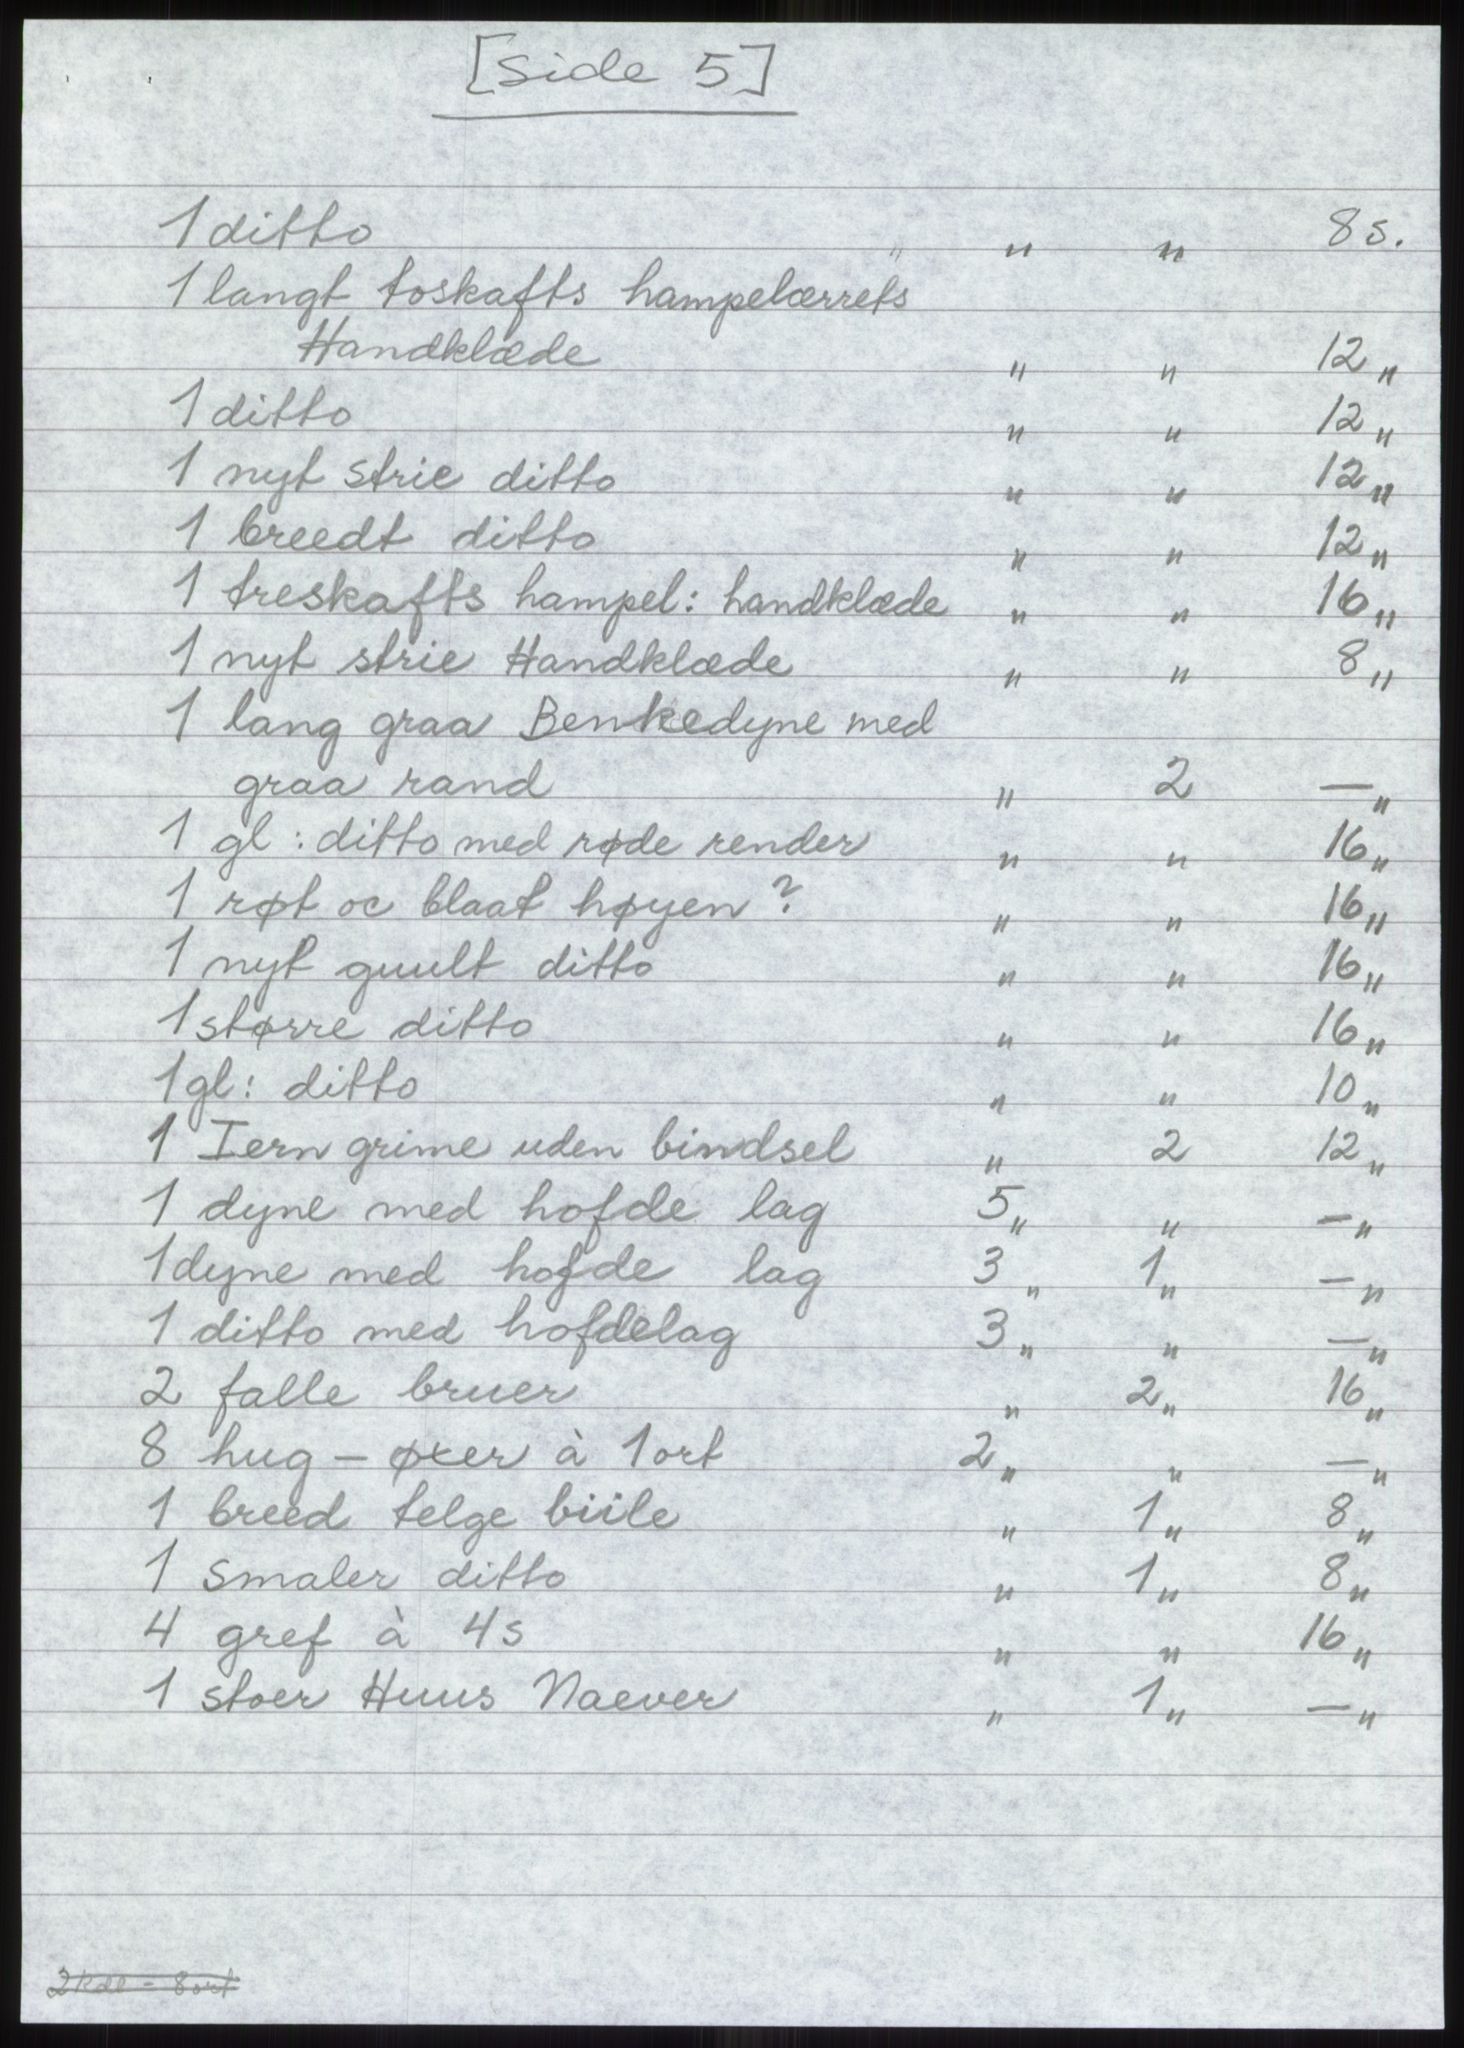 [Side 5]
1 ditto " " " 8 s.
1 langt toskafts hampelærrets
Handklæde " " 12 "
1 ditto " " 12 "
1 nyt strie ditto " " 12 "
1 breedt ditto " " 12 "
1 treskafts hampel: handklæde " " 16 "
1 nyt strie Handklæde " " 8 "
1 lang graa Benkedyne med
graa rand " 2 — "
1 gl: ditto med røde render " " 16 "
1 røt oc blaat høyen ? " " 16 "
1 nyt guult ditto " " 16 "
1 større ditto " " 16 "
1 gl: ditto " " 10 "
1 Iern grime uden bindsel " 2 12 "
1 dyne med hofde lag 5 " " — "
1 dyne med hofde lag 3 " 1 " — "
1 ditto med hofdelag 3 " " — "
2 falle bruer " 2 " 16 "
8 hug - øxer à 1 ort 2 " " — "
1 breed telge biile " 1 " 8 "
1 Smaler ditto " 1 " 8 "
4 gref à 4 s " " 16 "
1 stoer Huus Naever " 1 " — "
2 kdl - 8 ort